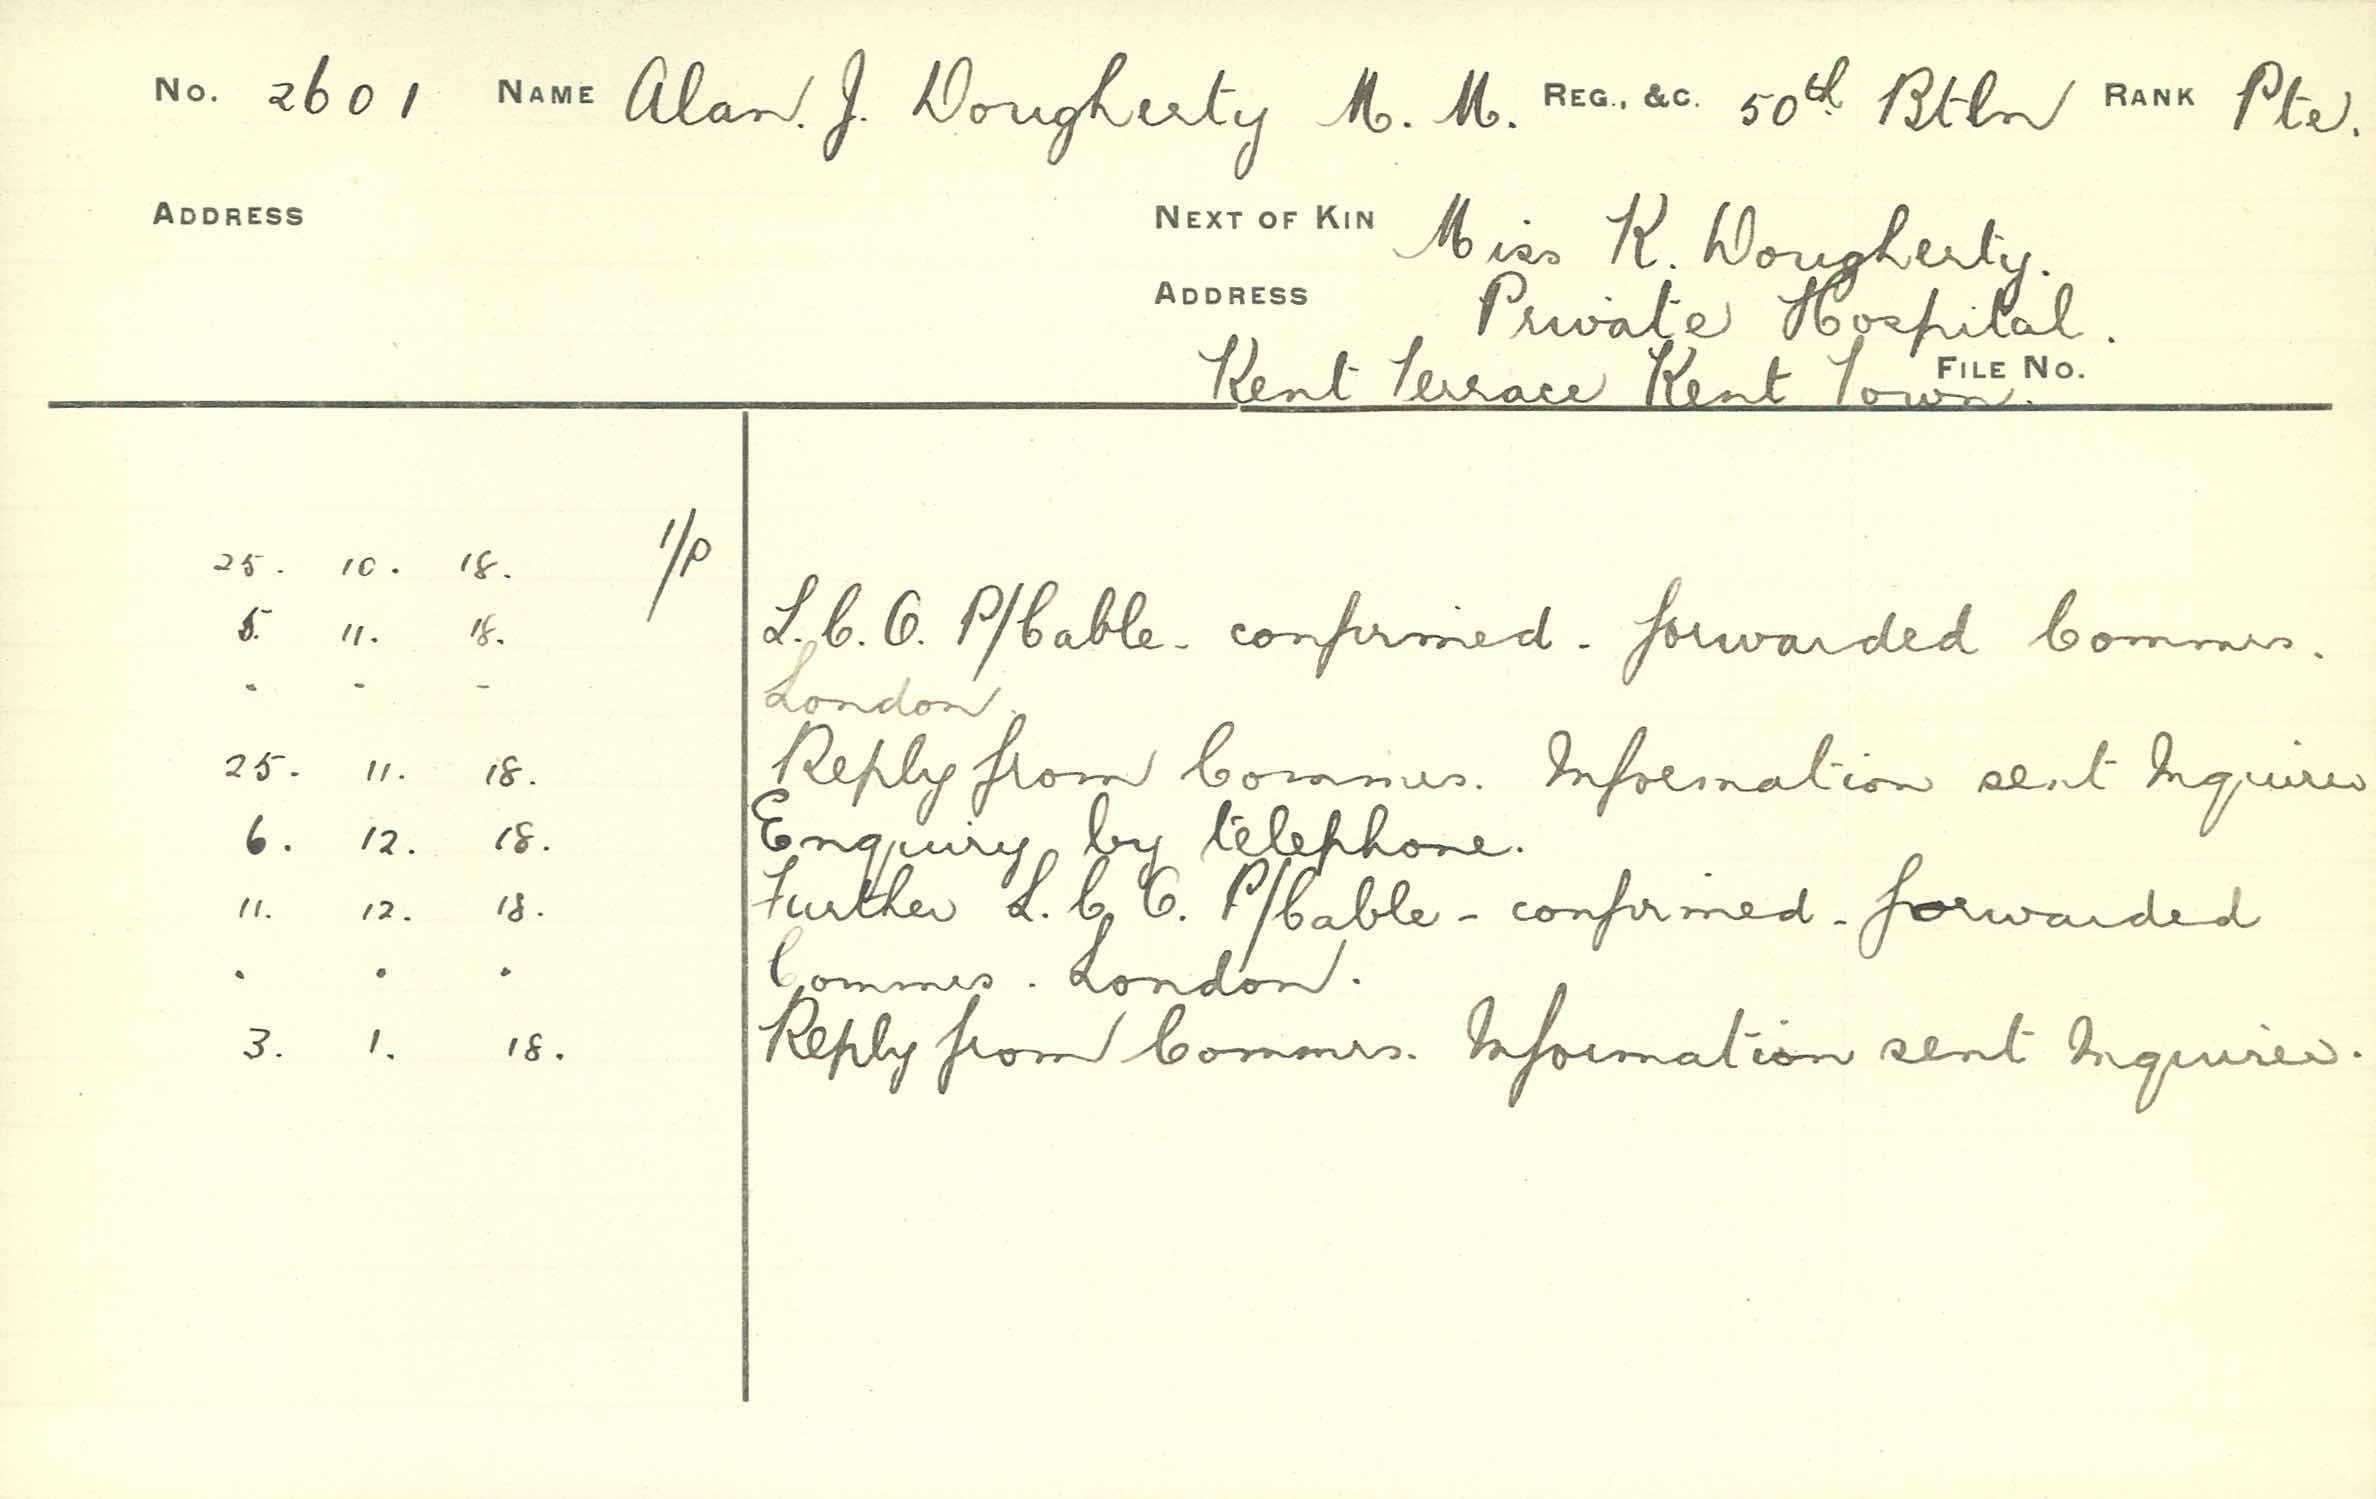 No. 2601 NAME Alan. J. Dougherty M. M. REG., &C. 50th Btln RANK Pte.
ADDRESS NEXT OF KIN Miss K. Dougherty.
ADDRESS Private Hospital.
Kent Terrace Kent Town. FILE No.
25. 10. 18. 1/P
5. 11. 18. L. C. O. P/Cable - confirmed - forwarded Commrs.
" " " London.
25. 11. 18. Reply from Commrs. Information sent Inquirer
6. 12. 18. Enquiry by telephone.
11. 12. 18. Further L. C. O. P/Cable - confirmed - forwarded
" " " Commrs. London.
3. 1. 18. Reply from Commrs. Information sent Inquirer.